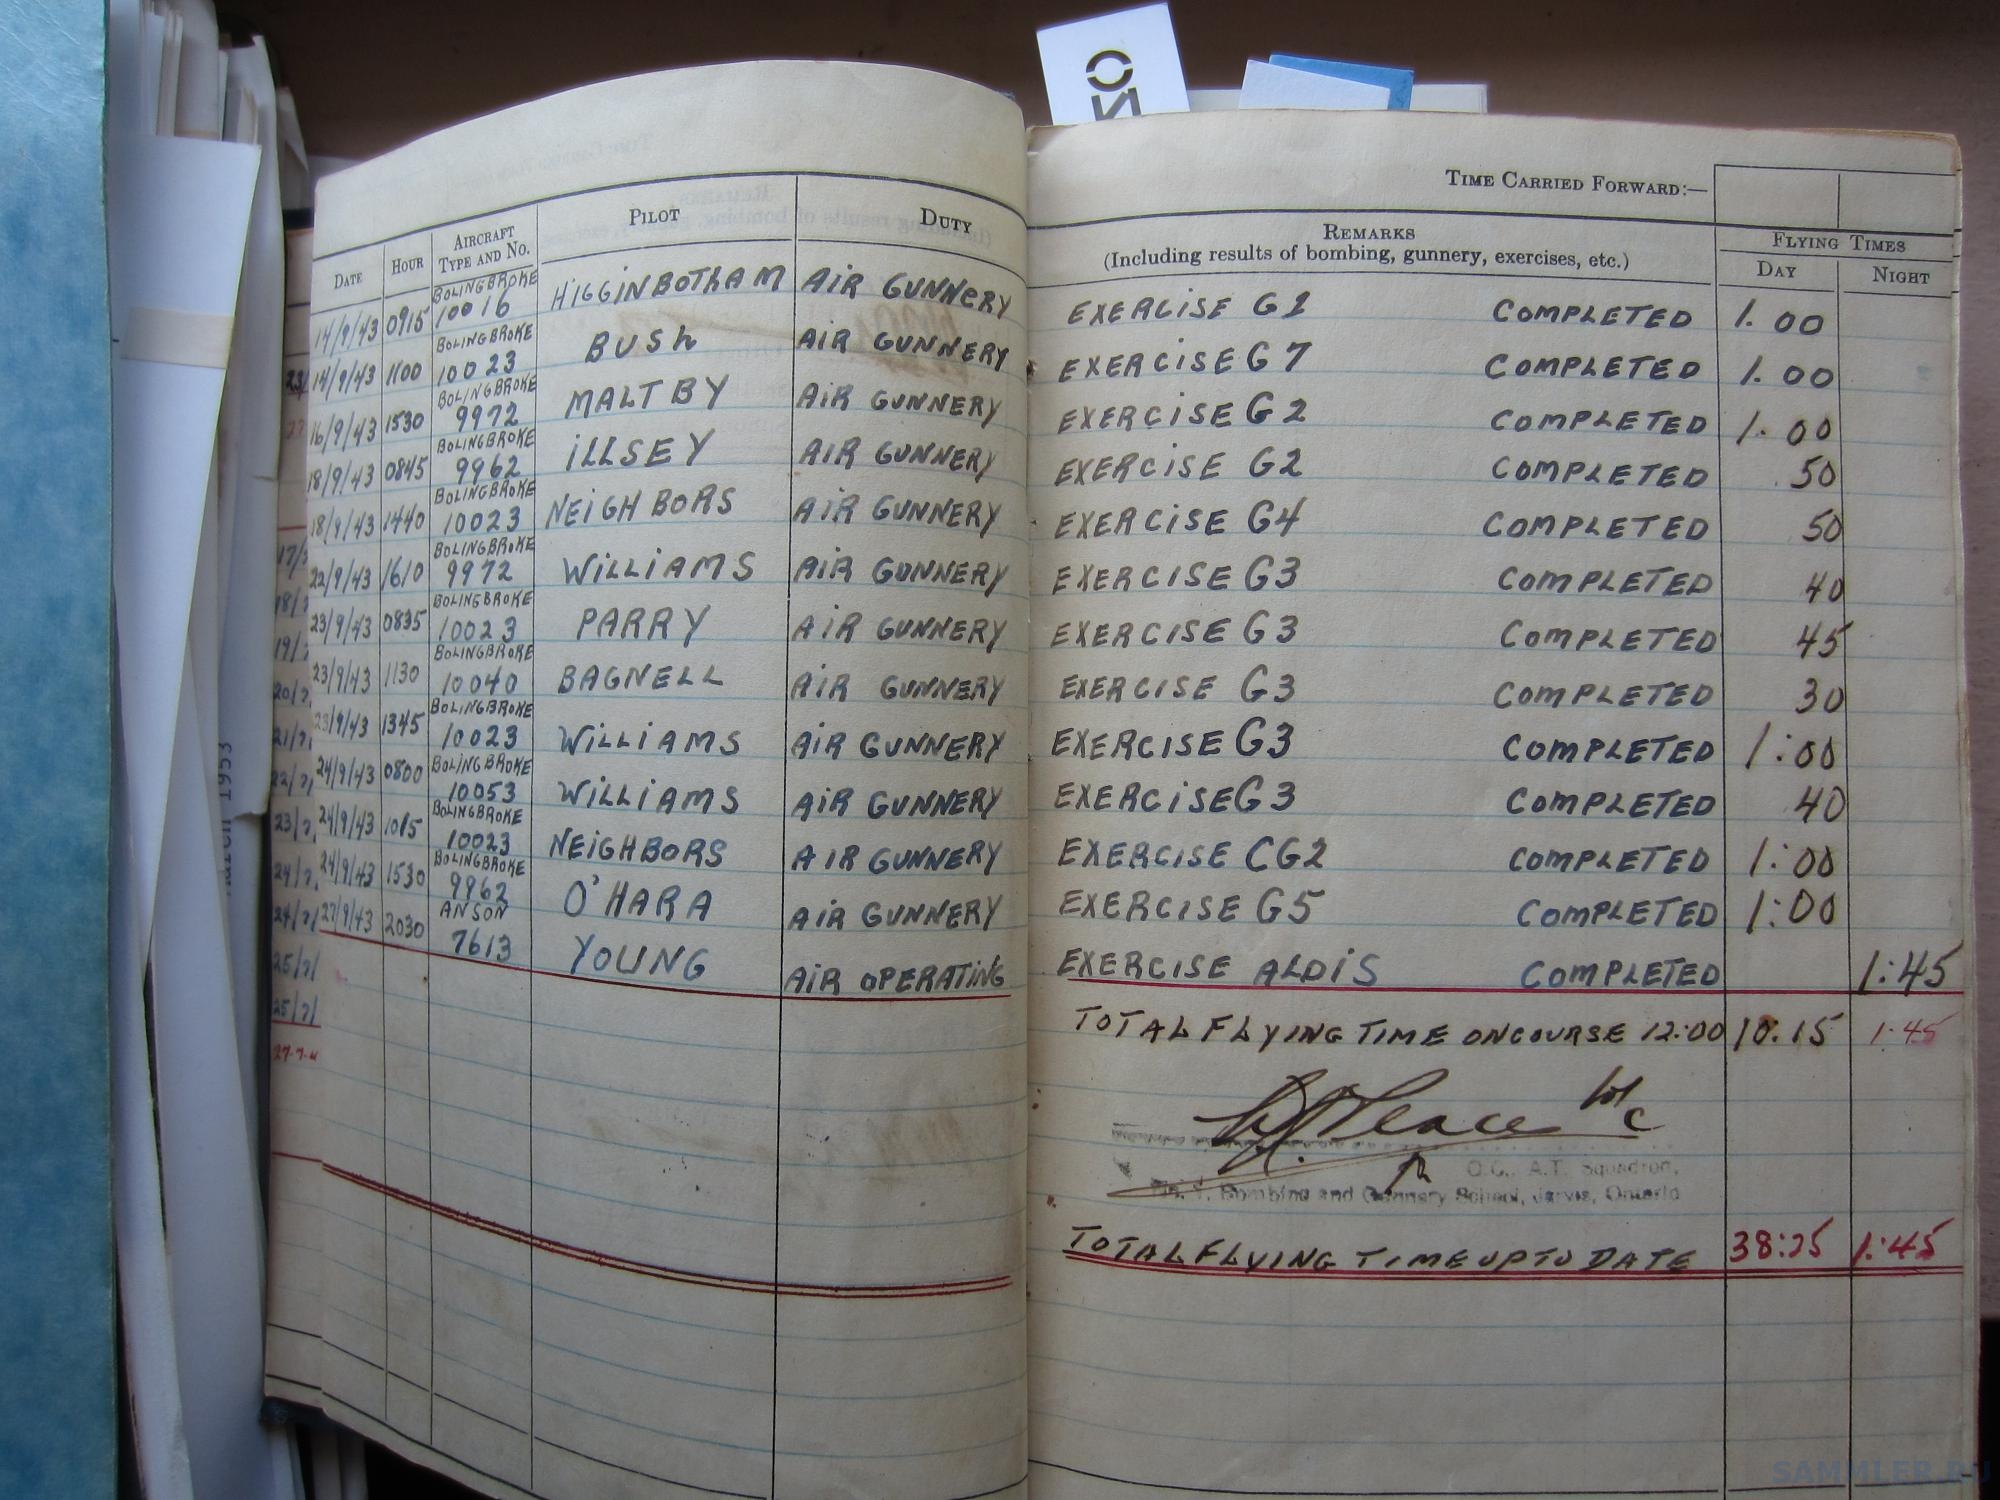 TIME CARRIED FORWARD:—
DATE HOUR AIRCRAFT TYPE AND NO. PILOT DUTY REMARKS (Including results of bombing, gunnery, exercises, etc.) FLYING TIMES DAY NIGHT
14/9/43 0915 BOLINGBROKE 10016 HIGGINBOTHAM AIR GUNNERY EXERCISE G1 COMPLETED 1.00
14/9/43 1100 BOLINGBROKE 10023 BUSH AIR GUNNERY EXERCISE G7 COMPLETED 1.00
16/9/43 1530 BOLINGBROKE 9972 MALTBY AIR GUNNERY EXERCISE G2 COMPLETED 1.00
18/9/43 0845 BOLINGBROKE 9962 ILLSEY AIR GUNNERY EXERCISE G2 COMPLETED .50
18/9/43 1440 BOLINGBROKE 10023 NEIGHBORS AIR GUNNERY EXERCISE G4 COMPLETED 50
22/9/43 1610 BOLINGBROKE 9972 WILLIAMS AIR GUNNERY EXERCISE G3 COMPLETED 40
23/9/43 0835 BOLINGBROKE 10023 PARRY AIR GUNNERY EXERCISE G3 COMPLETED 45
23/9/43 1130 BOLINGBROKE 10040 BAGNELL AIR GUNNERY EXERCISE G3 COMPLETED 30
23/9/43 1345 BOLINGBROKE 10023 WILLIAMS AIR GUNNERY EXERCISE G3 COMPLETED 1:00
24/9/43 0800 BOLINGBROKE 10053 WILLIAMS AIR GUNNERY EXERCISE G3 COMPLETED 40
24/9/43 1015 BOLINGBROKE 10023 NEIGHBORS AIR GUNNERY EXERCISE CG2 COMPLETED 1:00
24/9/43 1530 BOLINGBROKE 9962 O'HARA AIR GUNNERY EXERCISE G5 COMPLETED 1:00
27/9/43 2030 ANSON 7613 YOUNG AIR OPERATING EXERCISE ALDIS COMPLETED 1:45
TOTAL FLYING TIME ON COURSE 12:00 10:15 1:45
W/C
O.C., A.T. Squadron,
No. 1, Bombing and Gunnery School, Jarvis, Ontario
TOTAL FLYING TIME UP TO DATE 38:25 1:45
SAMMLER.RU